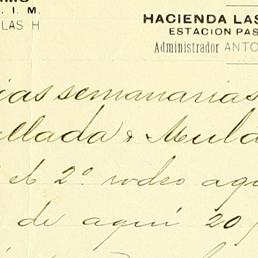 . I. M.
LAS H
HACIENDA LAS
ESTACION PAS
Administrador ANTO
ias semanarias
llada & Mula
el 2º rodeo aqu
de aquí 20